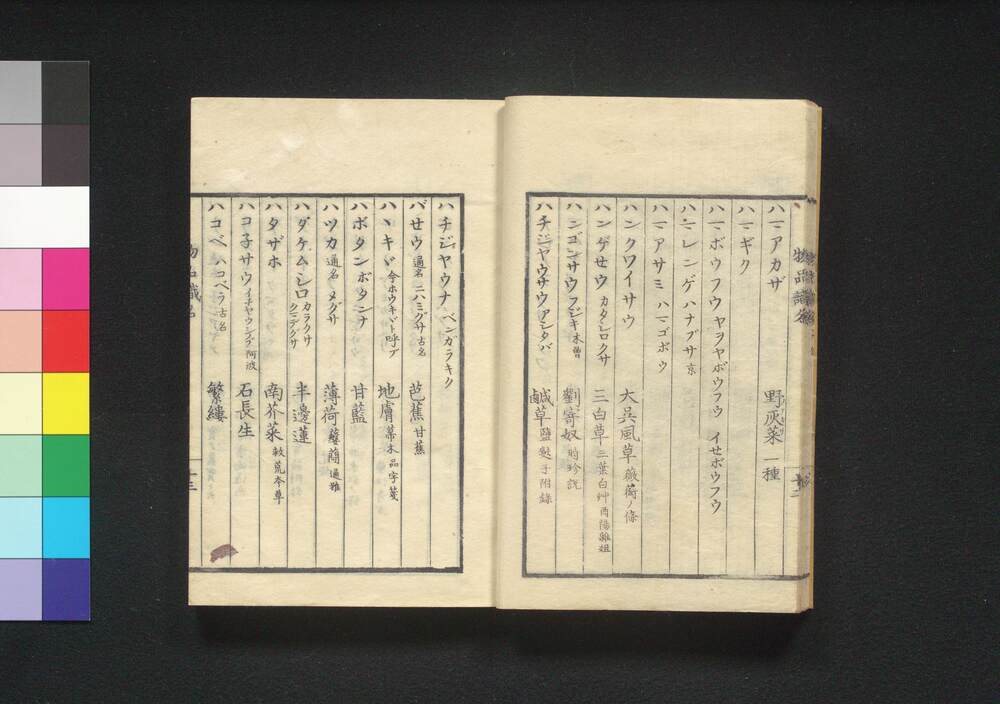 ハマアカザ 野灰菜 一種
ハマギク
ハマボウフウ ヤヲヤボウフウ イセボウフウ
ハマレンゲ ハナブサ 京
ハマアサミ ハマゴボウ
ハンクワイサウ 大呉風草 薇蕎ノ條
ハンゲセウ カタシロクサ 三白草 三葉白艸 酉陽雜俎
ハンゴンサウ フジキ 木曽 劉寄奴 時珍説
ハチジヤウサウ アシタバ 鹹草 附錄
ハチジヤウナ ベンガラキク
バせウ 通名 ニハミグサ 古名 芭蕉 甘蕉
ハヽキヾ 今ホウキヾト呼ブ 地膚 落木 品字箋
ハボタン ボタンナ 甘藍
ハツカ 通名 メグサ 薄荷 通雅
ハダケムシロ カラクサ クニデグサ 半邊蓮
ハタザホ 南芥菜 救荒本草
ハコ子サウ イチヤウシノブ 阿波 石長生
ハコベ ハコベラ 古名 繁縷
物品識名